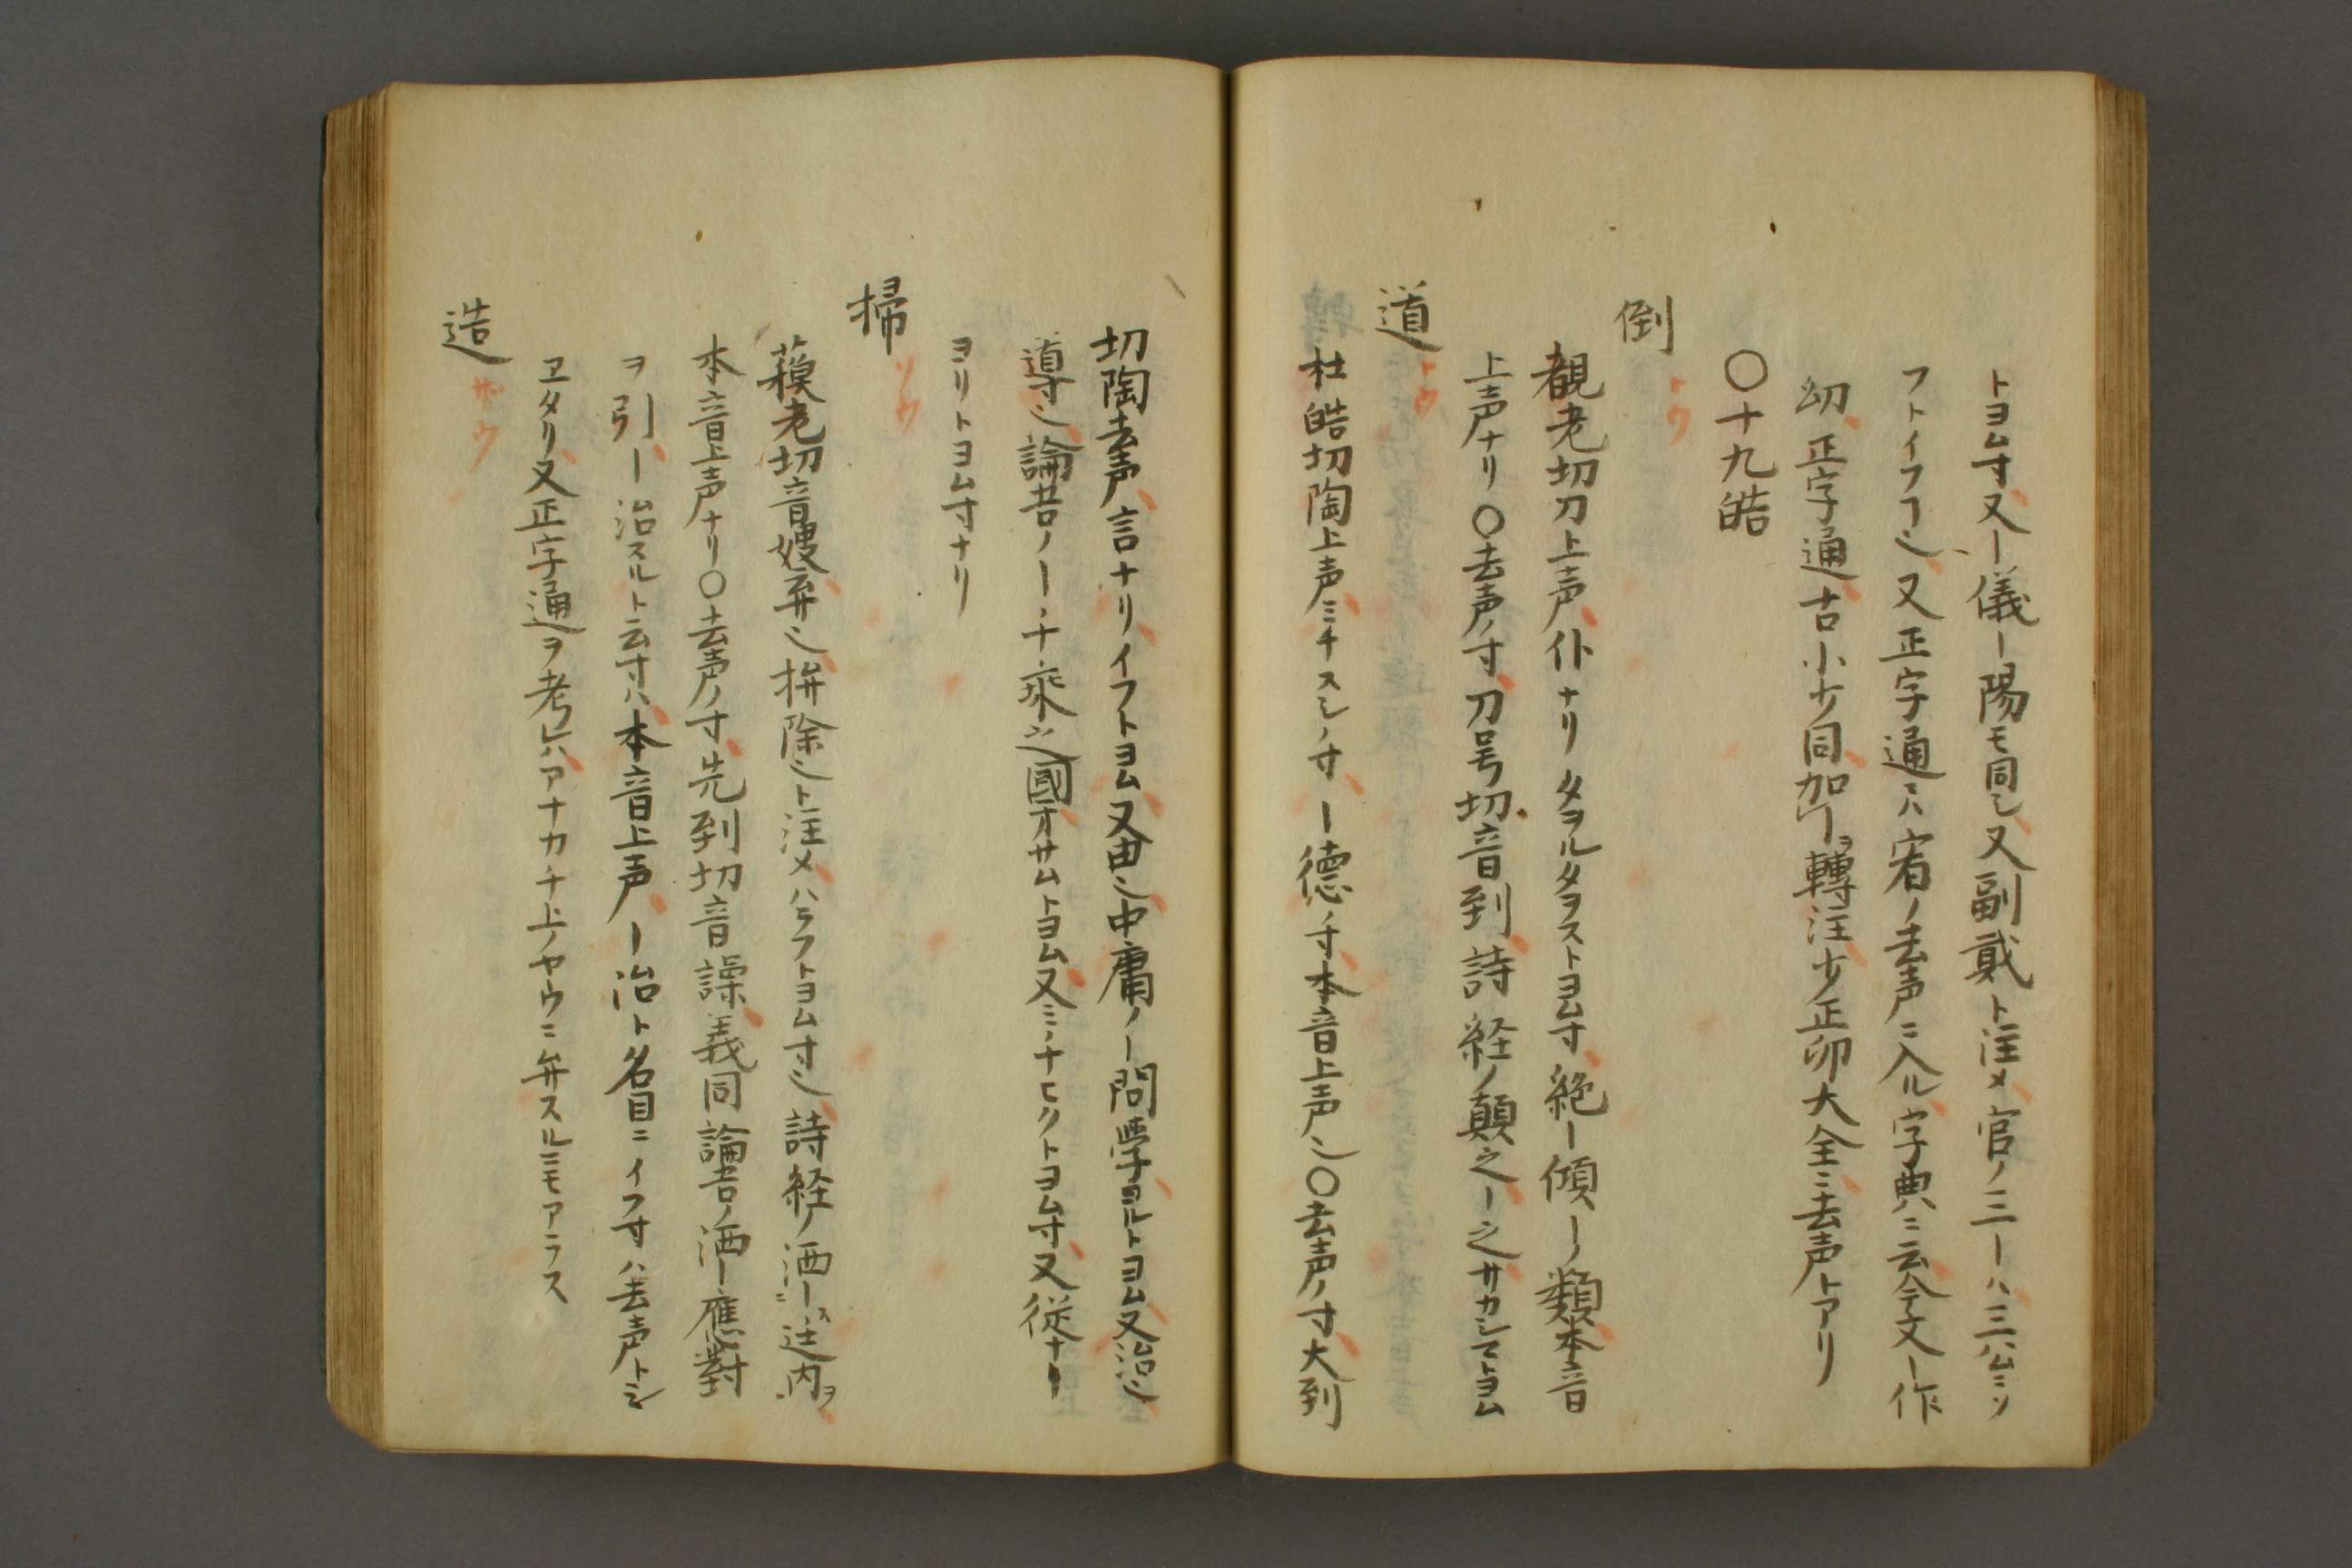 トヨム寸又ー儀ー陽モ同シ又副貳ト注メ官ノ三ーハ三公ニソ
フトイフヿ也又正字通ニハ宥ノ去声ニ入ル字典ニ云今文ー作
幼正字通古小少同加ーヲ轉注少正卯大全ニ去声トアリ
〇十九皓
倒
トウ
覩老切刀上声仆ナリタヲルタヲストヨム寸絶ー傾ーノ類本音
上声ナリ〇去声ノ寸刀号切音到詩経ノ顛之ー之サカシマトヨム
道
トウ
杜皓切陶上声ミチスシノ寸ー徳ノ寸本音上声也〇去声ノ寸大到
切陶去声言ナリイフトヨム又由也中庸ノー問学ヨルトヨム又治也
導也論吾ノーニ千乘之國オサムトヨム又ミチヒクトヨム寸又従ナリ
ヨリトヨム寸ナリ
掃
ソウ
蘓老切音嫂弃也拚除也ト注メハラフトヨム寸也詩経ノ洒ー廷内ヲ
本音上声ナリ〇去声ノ寸先到切音譟義同論吾ノ洒ー應對
ヲ引ー治スルト云寸ハ本音上声ー治ト名目ニイフ寸ハ去声ト也
ヱタリ又正字通ヲ考レハアナカチ上ノヤウニ弁スルニモアラス
造
サウ